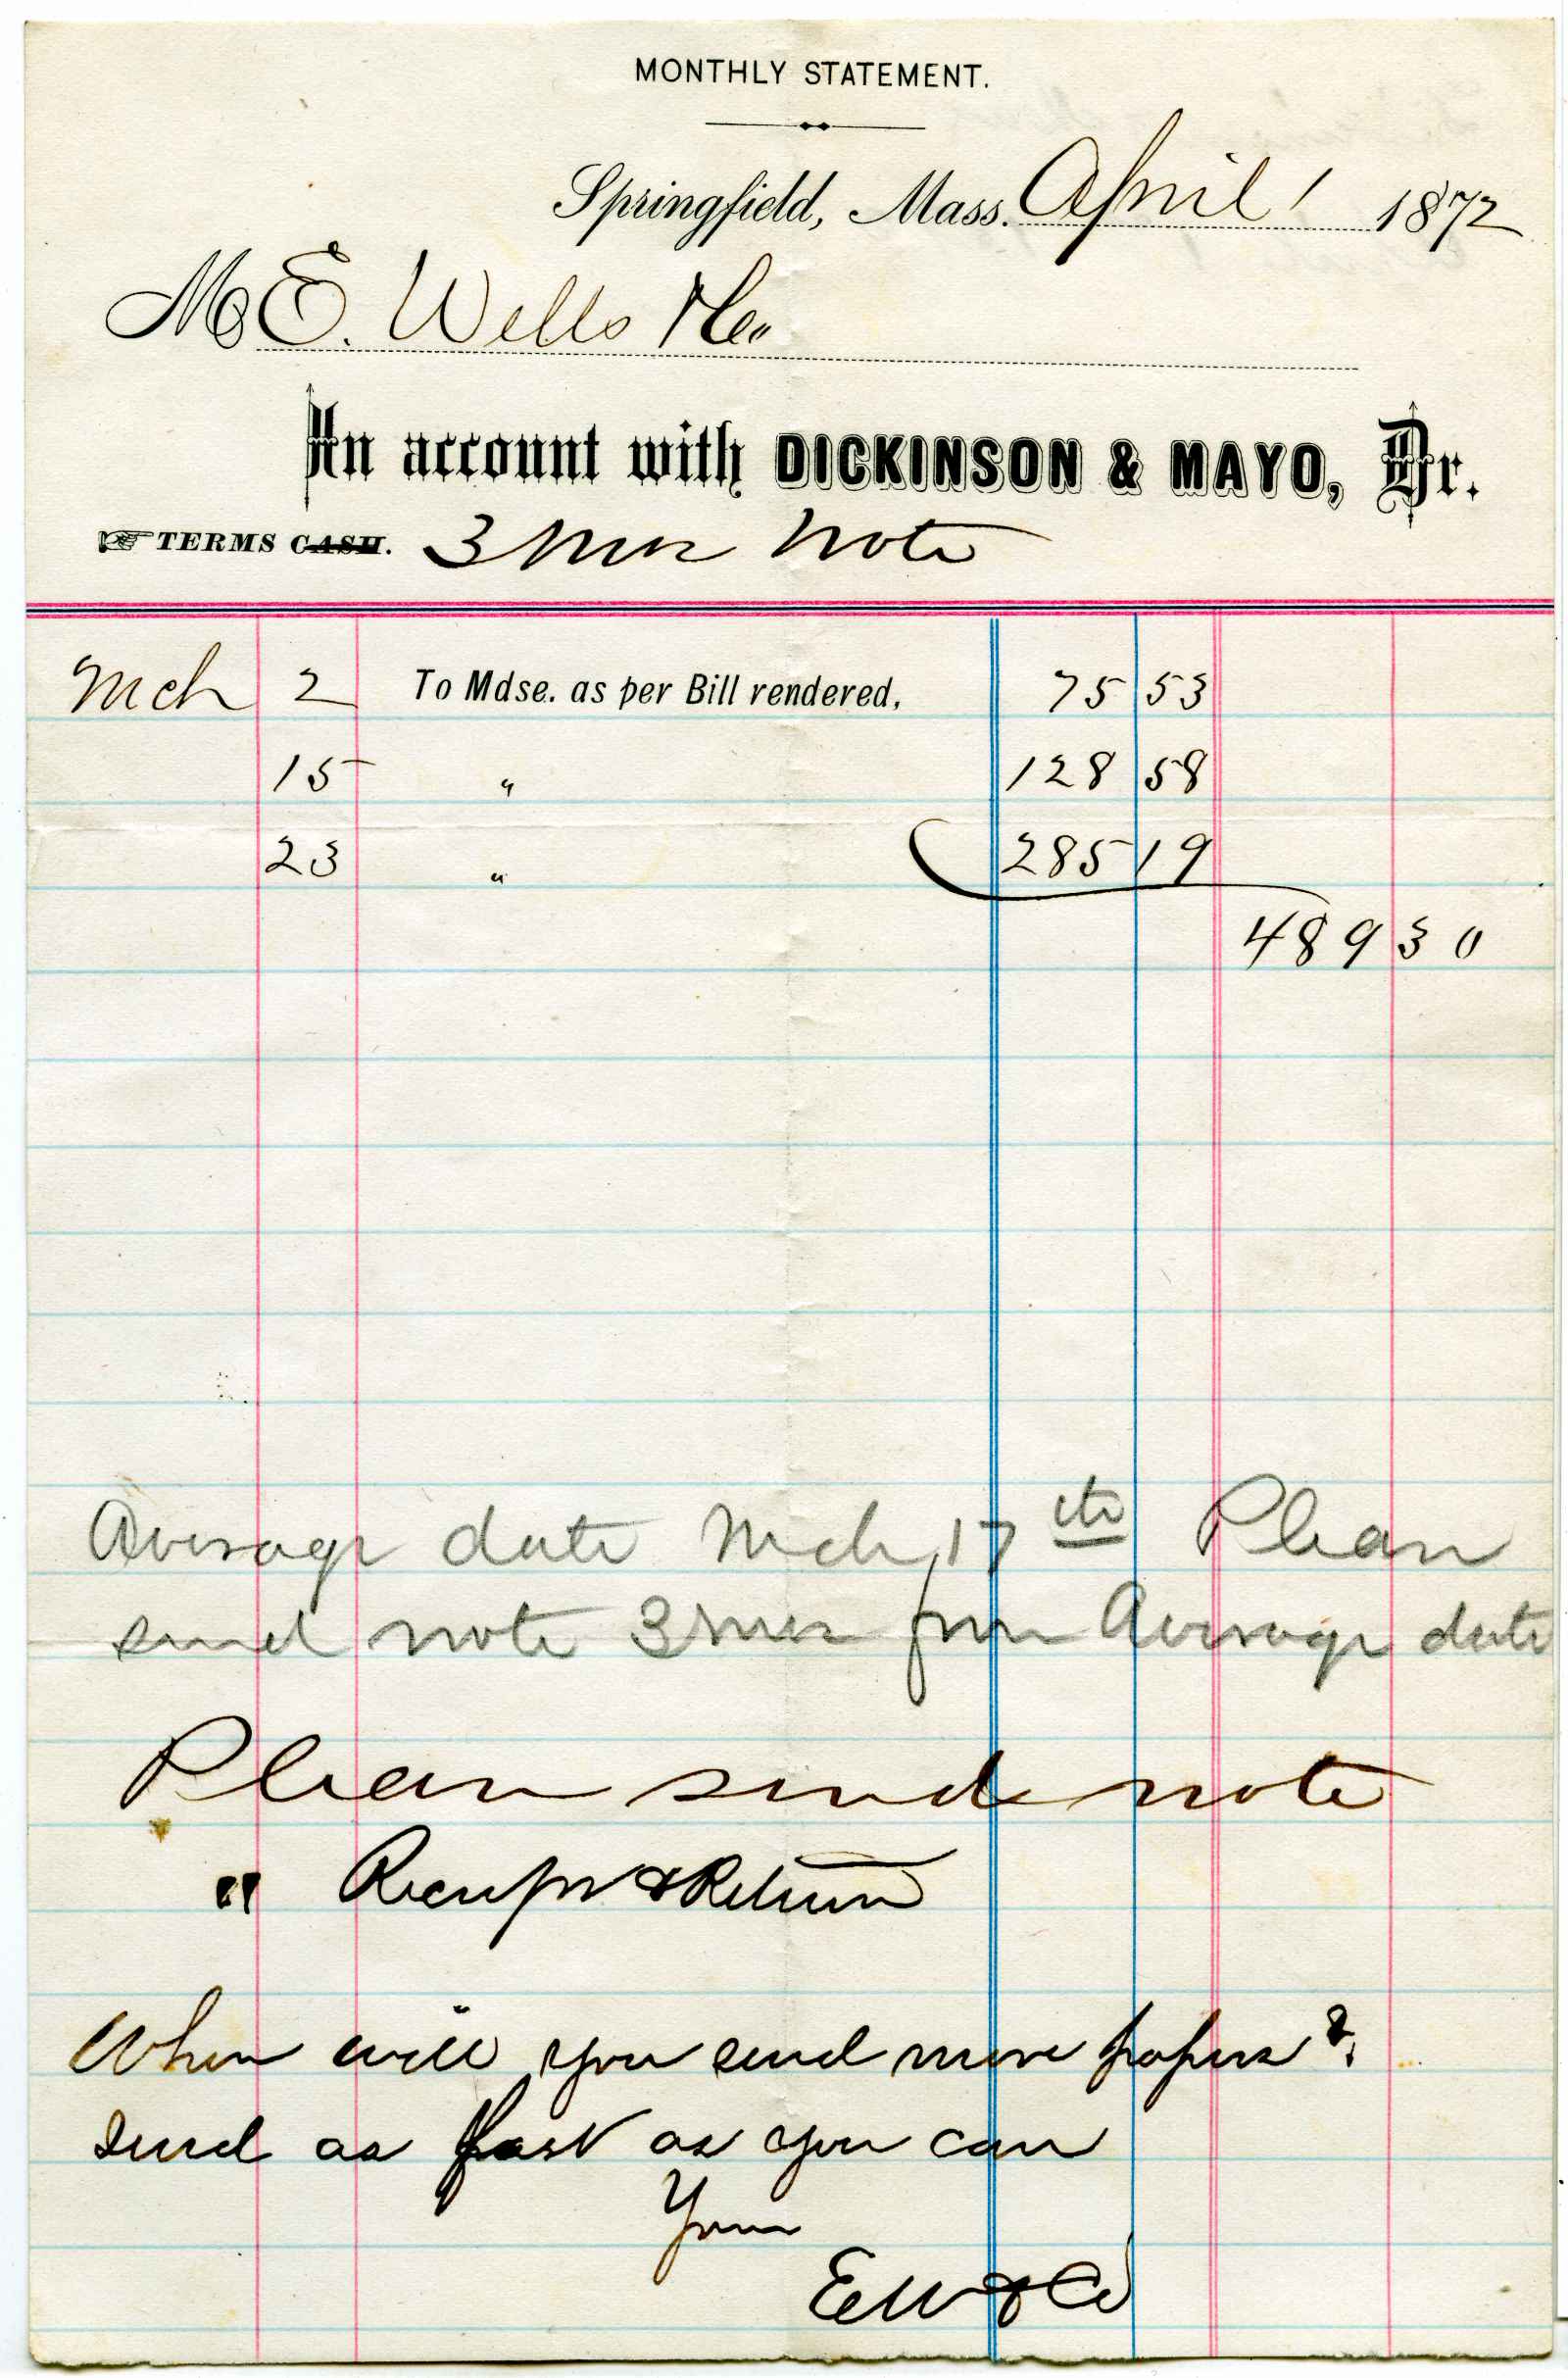 MONTHLY STATEMENT.
Springfield, Mass. April 1 1872
M E. Wells & Co
In account with DICKINSON & MAYO, Dr.
TERMS CASH. 3 mos note
Mch 2 To Mdse. as per Bill rendered, 75 53
15 " 128 58
23 " 285 19
489 30
Average date Mch 17th Please
send note 3 mos from Average date
Please send note
" Receipt & Return
When will you send more papers?
send as fast as you can
Yours
E W & Co